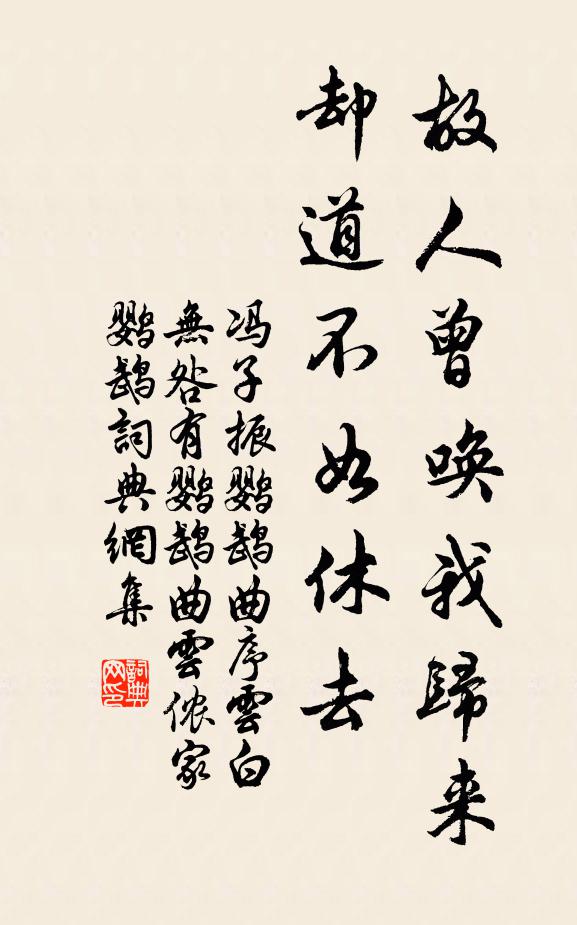 故人曾唤我歸来
却道不如休去
冯子振鹦鹉曲序雲白
無咎有鹦鹉曲雲侬家
鹦鹉詞典網集
詞典网印